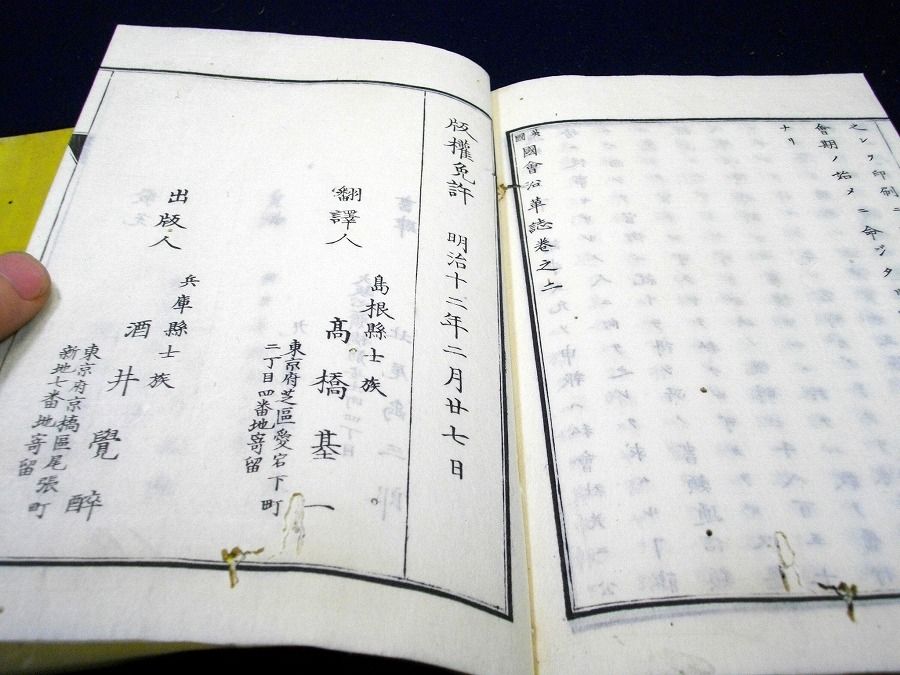 之レヲ印刷ニ
會期ノ始メニ命ジタ
ナリ
英國國會沿革誌卷之二
版權免許 明治十二年二月廿七日
翻譯人
島根縣士族
高橋基一
東京府芝區愛宕下町
二丁目四番地寄留
出版人
兵庫縣士族
酒井覺醉
東京府京橋區尾張町
新地七番地寄留